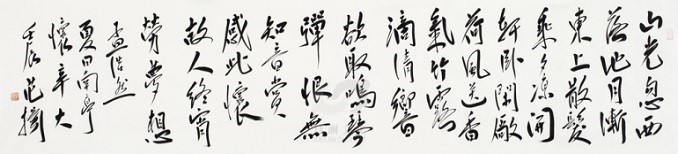 山光忽西
落池月漸
東上散髮
乘夕涼開
軒卧閑敞
荷風送香
氣竹露
滴清響
欲取鳴琴
彈恨無
知音賞
感此懷
故人終宵
勞夢想
孟浩然
夏日南亭
懷辛大
壬辰